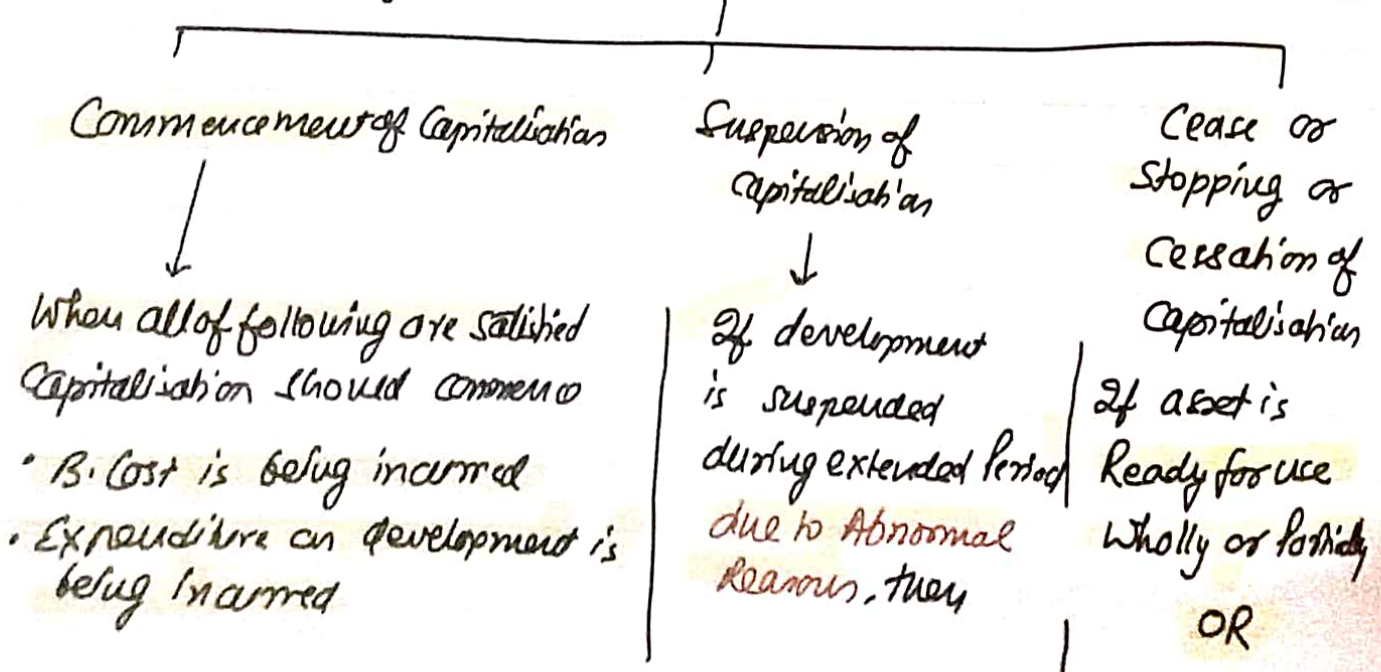 Commencement of Capitalisation
When all of following are satisfied
Capitalisation should commence
• B. Cost is being incurred
• Expenditure on development is
being incurred
Suspension of
Capitalisation
If development
is suspended
during extended Period
due to Abnormal
Reasons, then
Cease or
Stopping or
Cessation of
Capitalisation
If asset is
Ready for use
Wholly or Partially
OR